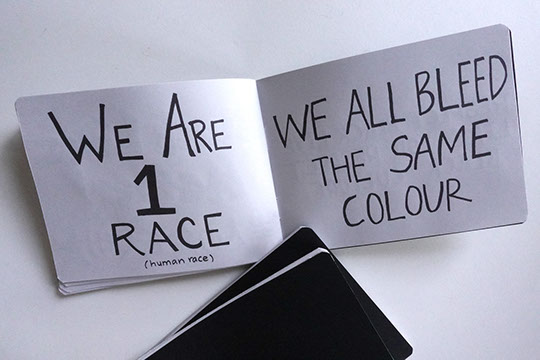 WE ARE
1
RACE
(human race)
WE ALL BLEED
THE SAME
COLOUR